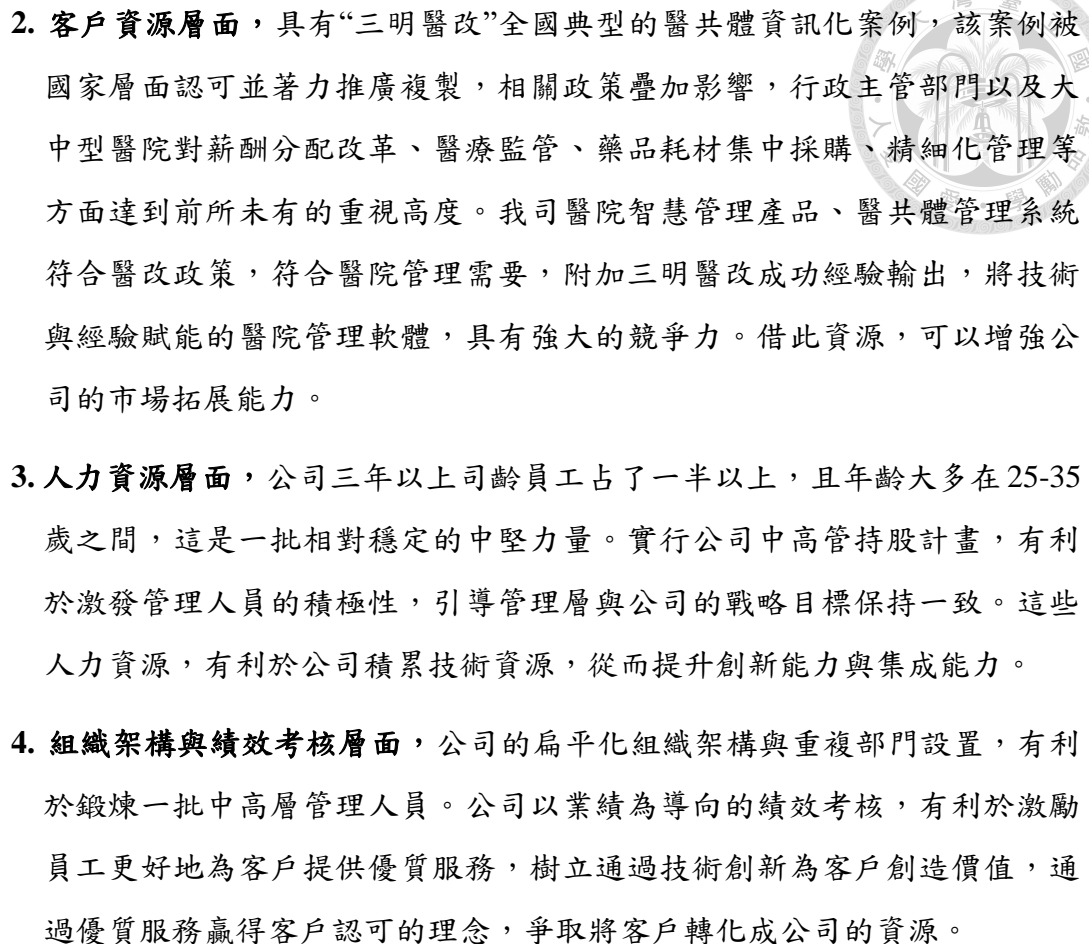 2. 客戶資源層面，具有“三明醫改”全國典型的醫共體資訊化案例，該案例被
國家層面認可並著力推廣複製，相關政策疊加影響，行政主管部門以及大
中型醫院對薪酬分配改革、醫療監管、藥品耗材集中採購、精細化管理等
方面達到前所未有的重視高度。我司醫院智慧管理產品、醫共體管理系統
符合醫改政策，符合醫院管理需要，附加三明醫改成功經驗輸出，將技術
與經驗賦能的醫院管理軟體，具有強大的競爭力。借此資源，可以增強公
司的市場拓展能力。
3. 人力資源層面，公司三年以上司齡員工占了一半以上，且年齡大多在 25-35
歲之間，這是一批相對穩定的中堅力量。實行公司中高管持股計畫，有利
於激發管理人員的積極性，引導管理層與公司的戰略目標保持一致。這些
人力資源，有利於公司積累技術資源，從而提升創新能力與集成能力。
4. 組織架構與績效考核層面，公司的扁平化組織架構與重複部門設置，有利
於鍛煉一批中高層管理人員。公司以業績為導向的績效考核，有利於激勵
員工更好地為客戶提供優質服務，樹立通過技術創新為客戶創造價值，通
過優質服務贏得客戶認可的理念，爭取將客戶轉化成公司的資源。